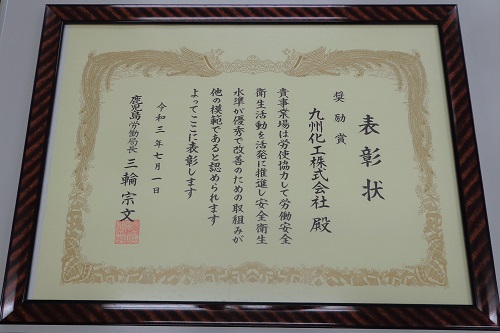 表彰状
奨励賞
九州化工株式会社 殿
貴事業場は労使協力して労働安全
衛生活動を活発に推進し安全衛生
水準が優秀で改善のための取組みが
他の模範であると認められます
よってここに表彰します
令和三年七月一日
鹿児島労働局長 三輪宗文